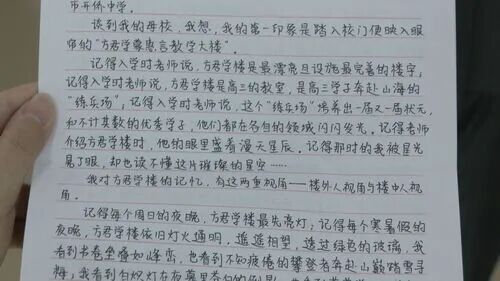 市开侨中学。
谈到我的母校，我想，我的第一印象是踏入校门便映入眼
帘的“方君学乐惠言教学大楼”。
记得入学时老师说，方君学楼是最漂亮且设施最完善的楼宇；
记得入学时老师说，方君学楼是高三的教室，是高三学子奔赴山海的
“练兵场”；记得入学时老师说，这个“练兵场”培养出一届又一届状元，
和不计其数的优秀学子，他们都在各自的领域闪闪发光。记得老师
介绍方君学楼时，他的眼里盛着漫天星辰。记得那时的我被星光
晃了眼，却也读不懂这片璀璨的星空……
我对方君学楼的记忆，有这两重视角——楼外人视角与楼中人视
角。
记得每个周日的夜晚，方君学楼最先亮灯；记得每个寒暑假的
夜晚，方君学楼依旧灯火通明，遥遥相望，透过绿色的玻璃，我
看到书卷垒叠如峰峦，也看到不知疲倦的攀登者奔赴山巅踏雪寻
梅；我看到白炽灯在夜幕里